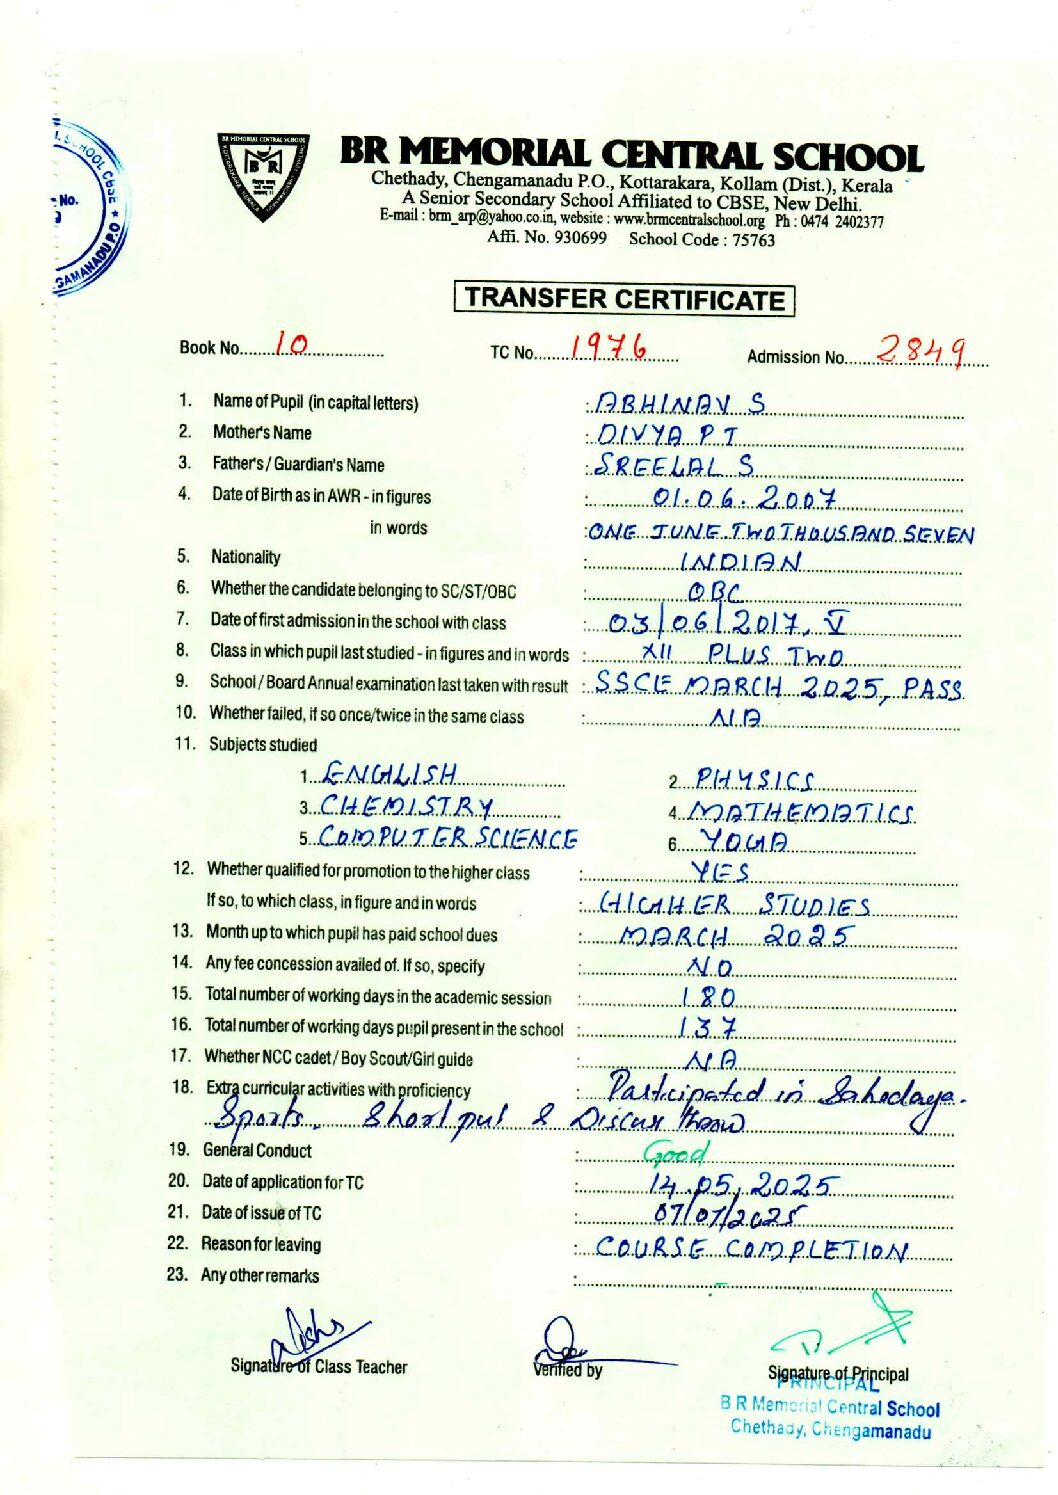 BR MEMORIAL CENTRAL SCHOOL
Chethady, Chengamanadu P.O., Kottarakara, Kollam (Dist.), Kerala
A Senior Secondary School Affiliated to CBSE, New Delhi.
E-mail : brm_arp@yahoo.co.in, website : www.brmcentralschool.org Ph : 0474 2402377
Affi. No. 930699 School Code : 75763
TRANSFER CERTIFICATE
Book No. 10 TC No. 1976 Admission No. 2849
1. Name of Pupil (in capital letters) : ABHINAV S
2. Mother's Name : DIVYA P T
3. Father's / Guardian's Name : SREELAL S
4. Date of Birth as in AWR - in figures : 01.06.2007
in words : ONE JUNE TWO THOUSAND SEVEN
5. Nationality : INDIAN
6. Whether the candidate belonging to SC/ST/OBC : OBC
7. Date of first admission in the school with class : 03/06/2017, V
8. Class in which pupil last studied - in figures and in words : XII PLUS TWO
9. School / Board Annual examination last taken with result : SSCE MARCH 2025, PASS
10. Whether failed, if so once/twice in the same class : NA
11. Subjects studied
1. ENGLISH 2. PHYSICS
3. CHEMISTRY 4. MATHEMATICS
5. COMPUTER SCIENCE 6. YOGA
12. Whether qualified for promotion to the higher class : YES
If so, to which class, in figure and in words : HIGHER STUDIES
13. Month up to which pupil has paid school dues : MARCH 2025
14. Any fee concession availed of. If so, specify : NO
15. Total number of working days in the academic session : 180
16. Total number of working days pupil present in the school : 137
17. Whether NCC cadet / Boy Scout/Girl guide : NA
18. Extra curricular activities with proficiency : Participated in Sahodaya
Sports. Short put & Discus throw
19. General Conduct : Good
20. Date of application for TC : 14.05.2025
21. Date of issue of TC : 07/07/2025
22. Reason for leaving : COURSE COMPLETION
23. Any other remarks :
Signature of Class Teacher Verified by Signature of Principal
PRINCIPAL
B R Memorial Central School
Chethady, Chengamanadu